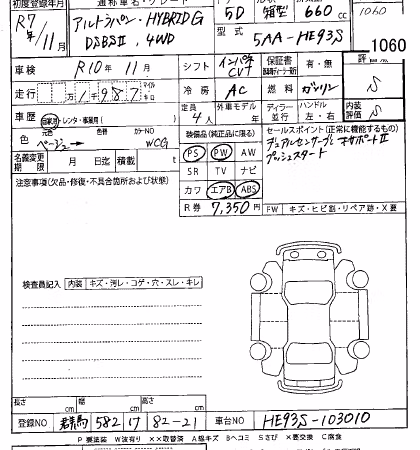 初度登録年月 通称車名・グレード 5D 箱型 660 cc 1060
R7年/11月 アルトラパン・HYBRID G
DSBSⅡ, 4WD 型式 5AA-HE93S 1060
車検 R10年 11月 シフト インパネCVT 保証書 有・無 評価点 S
走行 1987 冷房 AC 燃料 ガソリン
車歴 自家用・レンタ・事業用( ) 定員 4人 外車モデル 年 ディーラー 並行 ハンドル 左・右 内装評価 S
色 ベージュ カラーNO WCG 装備品(純正品に限る) セールスポイント(正常に機能するもの)
PS PW AW デュアルセンサーブレーキサポートⅡ
名義変更期限 月 日迄 積載 t SR TV ナビ プッシュスタート
注意事項(欠品・修復・不具合箇所および状態) カワ エアB ABS
R券 7,350円 FW キズ・ヒビ割・リペア跡・X要
検査員記入 内装 キズ・汚レ・コゲ・穴・スレ・キレ
長さ cm 幅 cm 高さ cm
登録NO 群馬 582 け 82-21 車台NO HE93S-103010
P 要塗装 W波有り ××取替済 A線キズ Bヘコミ Sさび ×要交換 C腐食